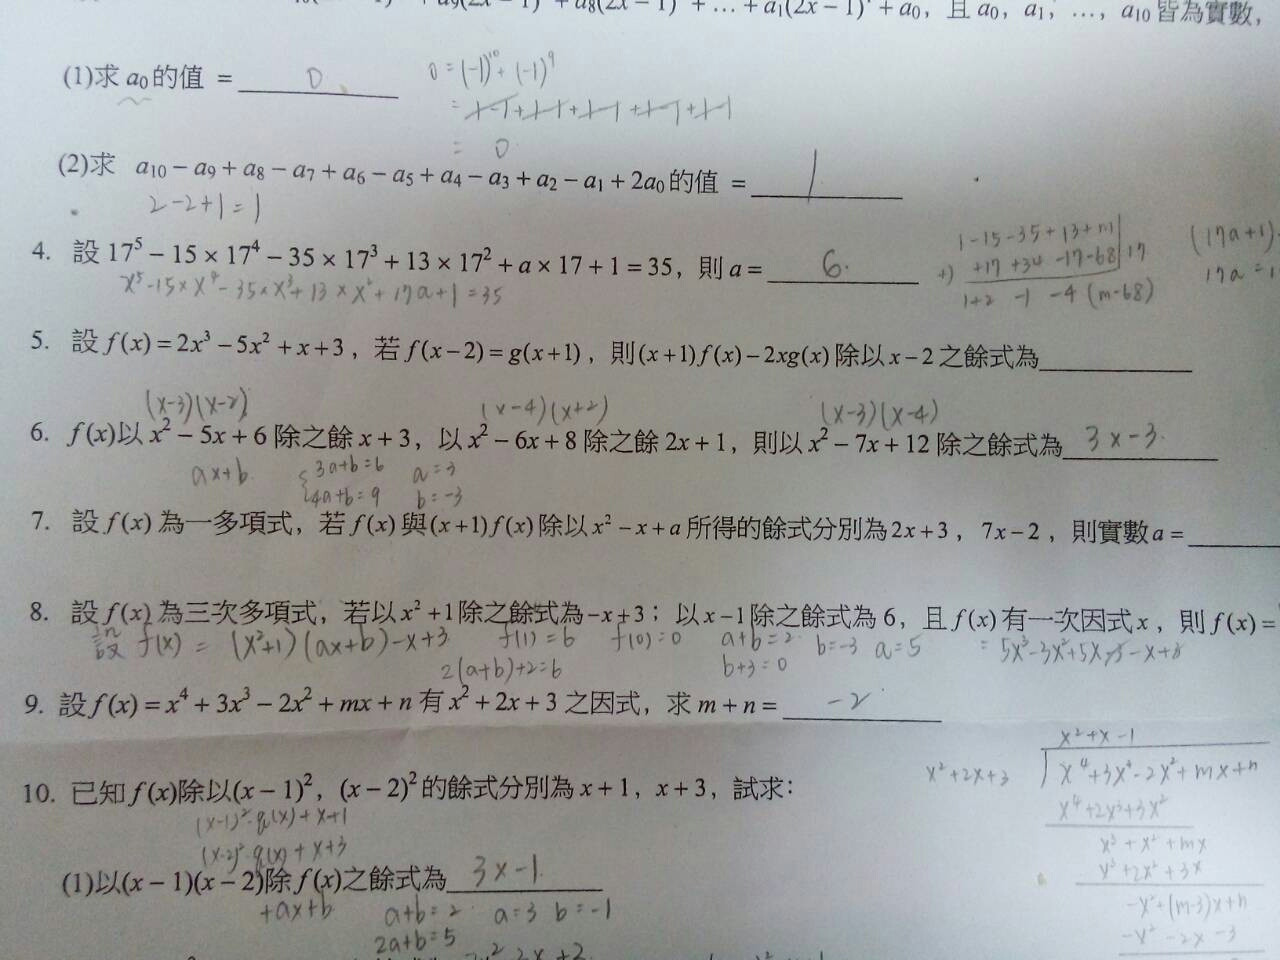 + a₉(2x − 1)⁹ + a₈(2x − 1)⁸ + … + a₁(2x − 1)¹ + a₀，且 a₀，a₁，…，a₁₀ 皆為實數，
(1)求 a₀ 的值 = 0
0 = (-1)¹⁰ + (-1)⁹
= 1-1+1-1+1-1+1-1+1-1
= 0
(2)求 a₁₀ − a₉ + a₈ − a₇ + a₆ − a₅ + a₄ − a₃ + a₂ − a₁ + 2a₀ 的值 = 1
2-2+1=1
4. 設 17⁵ − 15 × 17⁴ − 35 × 17³ + 13 × 17² + a × 17 + 1 = 35，則 a = 6
x⁵-15×x⁴-35×x³+13×x²+17a+1=35
1-15-35+13+m
+) +17+34-17-68 | 17
1+2 -1 -4 (m-68)
(17a+1)
17a = 1
5. 設 f(x) = 2x³ − 5x² + x + 3，若 f(x − 2) = g(x + 1)，則 (x + 1)f(x) − 2xg(x) 除以 x − 2 之餘式為
(x-3)(x-2) (x-4)(x+2) (x-3)(x-4)
6. f(x) 以 x² − 5x + 6 除之餘 x + 3，以 x² − 6x + 8 除之餘 2x + 1，則以 x² − 7x + 12 除之餘式為 3x-3
ax+b 3a+b=6 a=3
4a+b=9 b=-3
7. 設 f(x) 為一多項式，若 f(x) 與 (x + 1)f(x) 除以 x² − x + a 所得的餘式分別為 2x + 3，7x − 2，則實數 a =
8. 設 f(x) 為三次多項式，若以 x² + 1 除之餘式為 −x + 3；以 x − 1 除之餘式為 6，且 f(x) 有一次因式 x，則 f(x) =
設 f(x) = (x²+1)(ax+b)-x+3 f(1)=6 f(0)=0 a+b=2 b=-3 a=5 = 5x³-3x²+5x-3-x+3
2(a+b)+2=6 b+3=0
9. 設 f(x) = x⁴ + 3x³ − 2x² + mx + n 有 x² + 2x + 3 之因式，求 m + n = -2
x²+x-1
x²+2x+3 x⁴+3x³-2x²+mx+n
x⁴+2x³+3x²
x³+x²+mx
x³+2x²+3x
-x²+(m-3)x+n
-x²-2x-3
10. 已知 f(x) 除以 (x − 1)²，(x − 2)² 的餘式分別為 x + 1，x + 3，試求：
(x-1)²·q(x)+x+1
(x-2)²·q(x)+x+3
(1)以 (x − 1)(x − 2) 除 f(x) 之餘式為 3x-1
+ax+b a+b=2 a=3 b=-1
2a+b=5